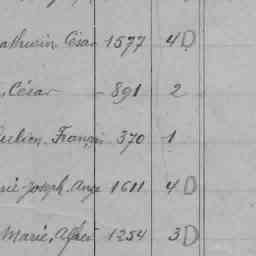 César 1577 4 D
César 891 2
François 370 1
Joseph Ange 1611 4 D
Marie, Alfred 1254 3 D